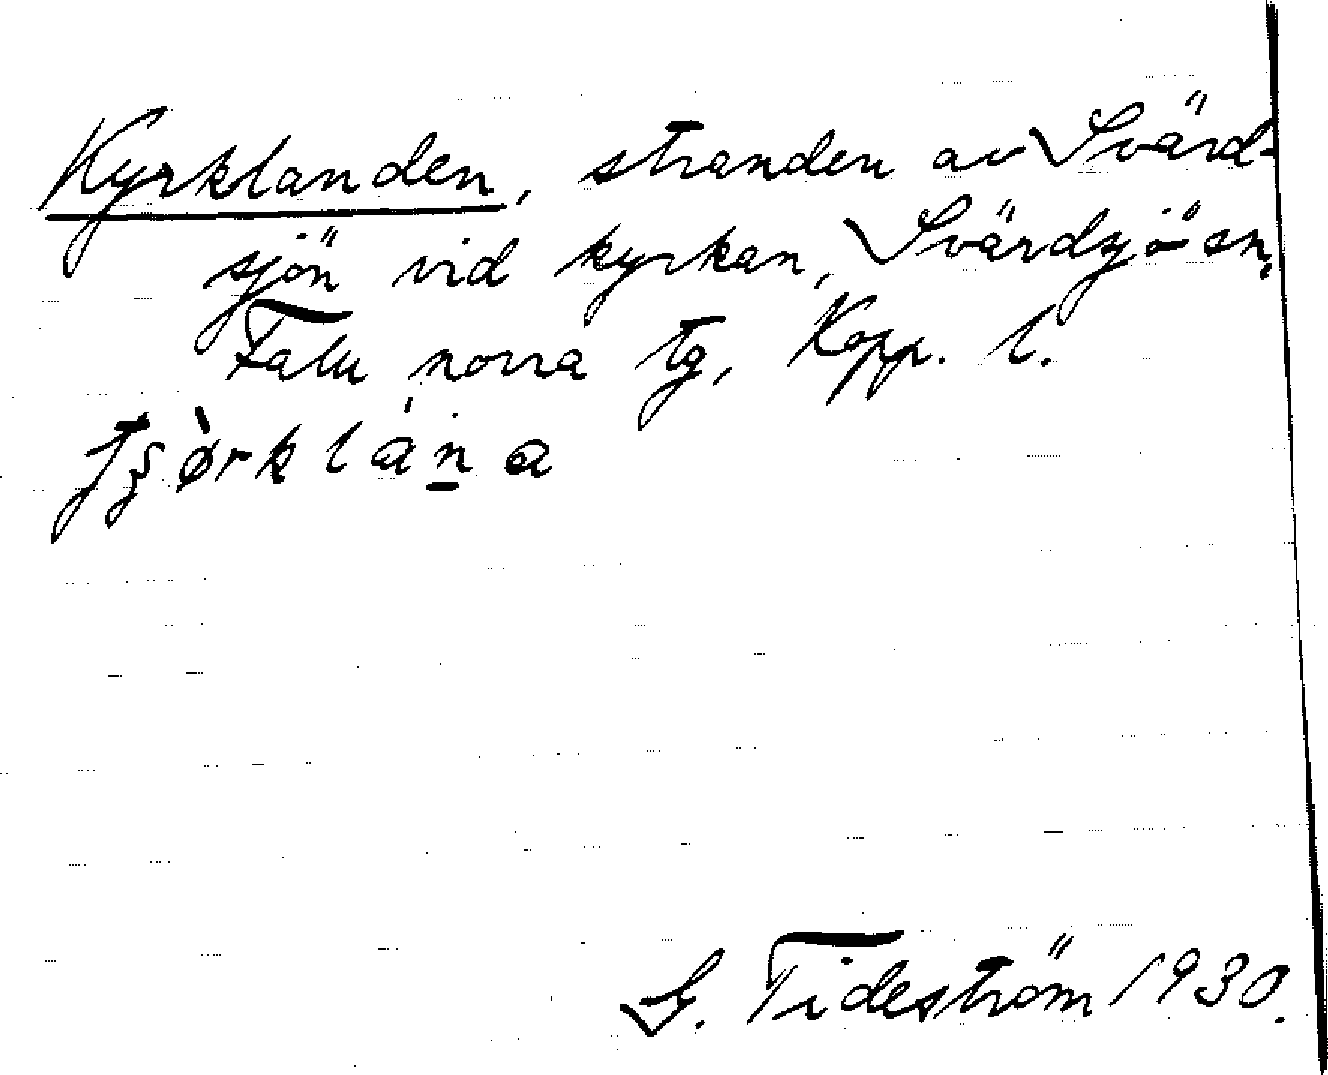 Kyrklanden, stranden av Svärd-
sjön vid kyrkan, Svärdsjö sn,
Falu norra tg, Kopp. l.
G. Tideström 1930.